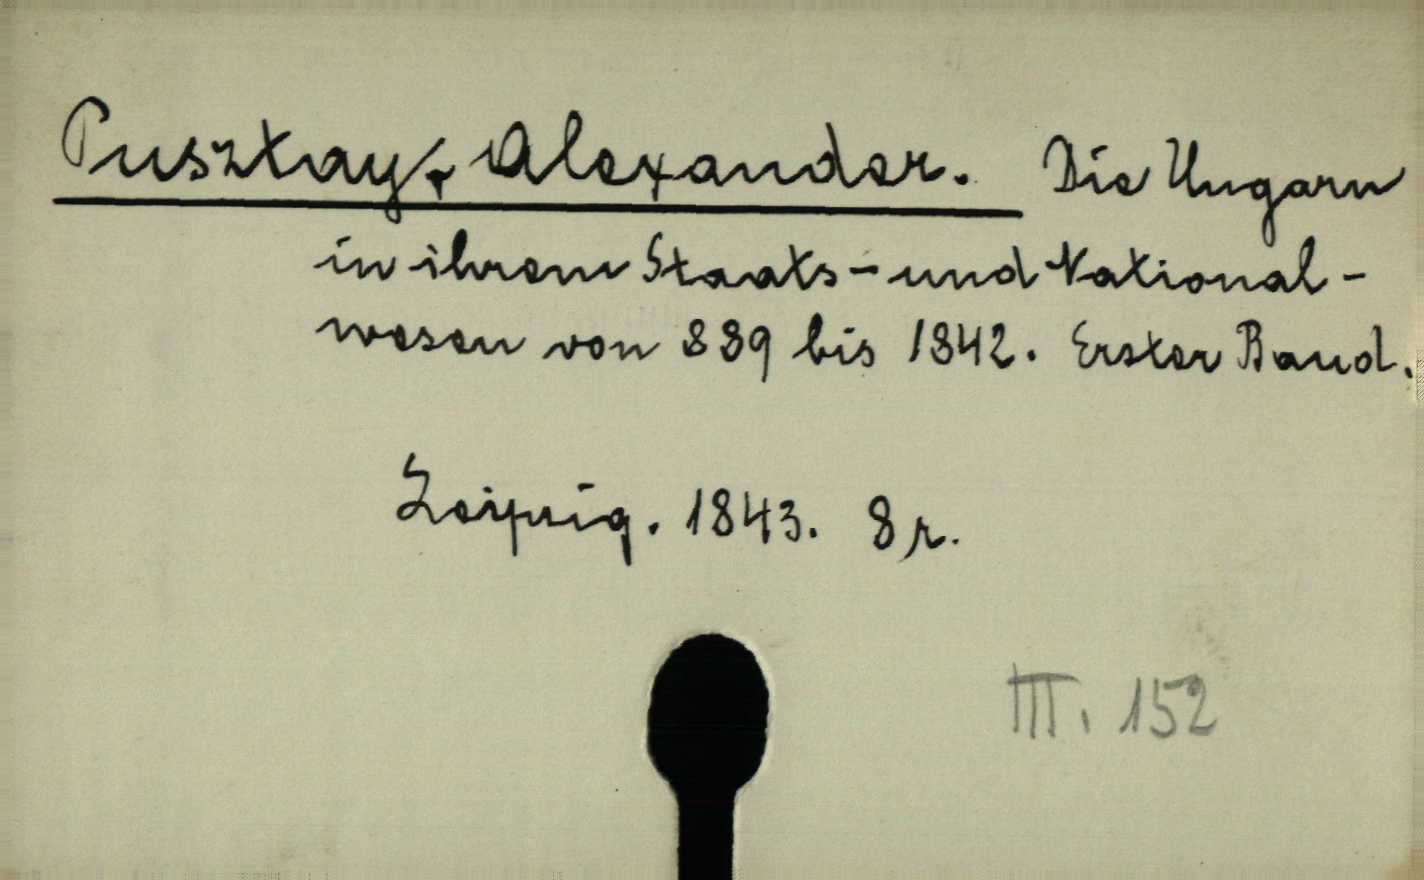 Pusztay, Alexander. Die Ungarn
in ihrem Staats- und National-
wesen von 889 bis 1842. Erster Band.
Leipzig. 1843. 8r.
III. 152